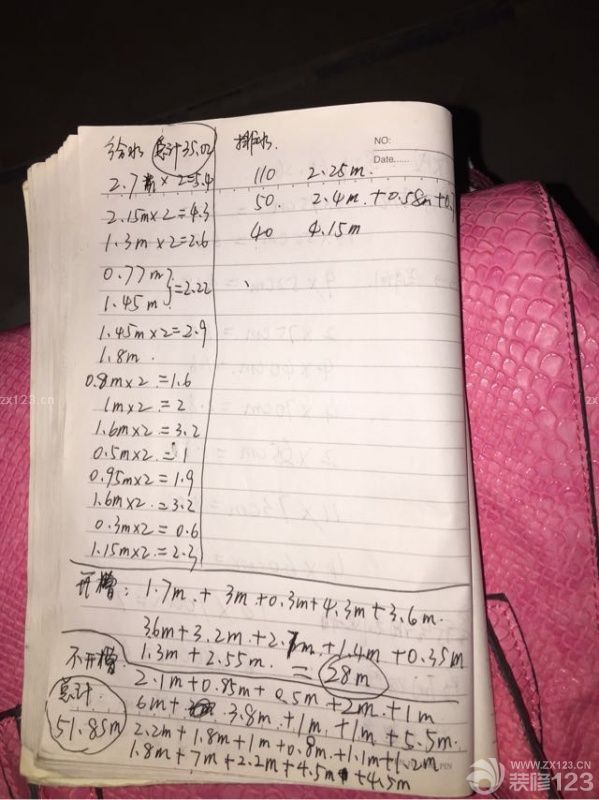 给水 总计35.02
2.7 × 2=5.4
2.15m×2=4.3
1.3m×2=2.6
0.77m
1.45m }=2.22
1.45m×2=2.9
1.8m.
0.8m×2=1.6
1m×2=2
1.6m×2=3.2
0.5m×2=1
0.95m×2=1.9
1.6m×2=3.2
0.3m×2=0.6
1.15m×2=2.3
排水
110 2.25m.
50. 2.4m.+0.58m+0.
40 4.15m
NO:
Date......
开槽: 1.7m.+3m+0.3m+4.3m+3.6m.
3.6m+3.2m+2.7m+1.4m+0.35m
1.3m+2.55m.=28m
不开槽:
2.1m+0.85m+0.5m+2m+1m
6m+ 3.8m+1m+1m+5.5m.
2.2m+1.8m+1m+0.8m+1.1m+1.2m
1.8m+7m+2.2m+4.5m+4.5m
总计:
51.85m
zx123.cn
www.zx123.cn
装修123